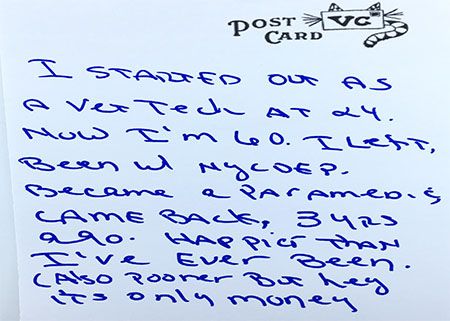 POST
CARD
VG
I STARTED OUT AS
A Vet Tech AT 24.
NOW I'm 60. I Left,
Been w/ NYCDEP.
Became a Paramedic,
CAME BACK, 3 yrs
ago. HAPPier THAN
I've Ever Been.
(Also Poorer But hey
it's only money